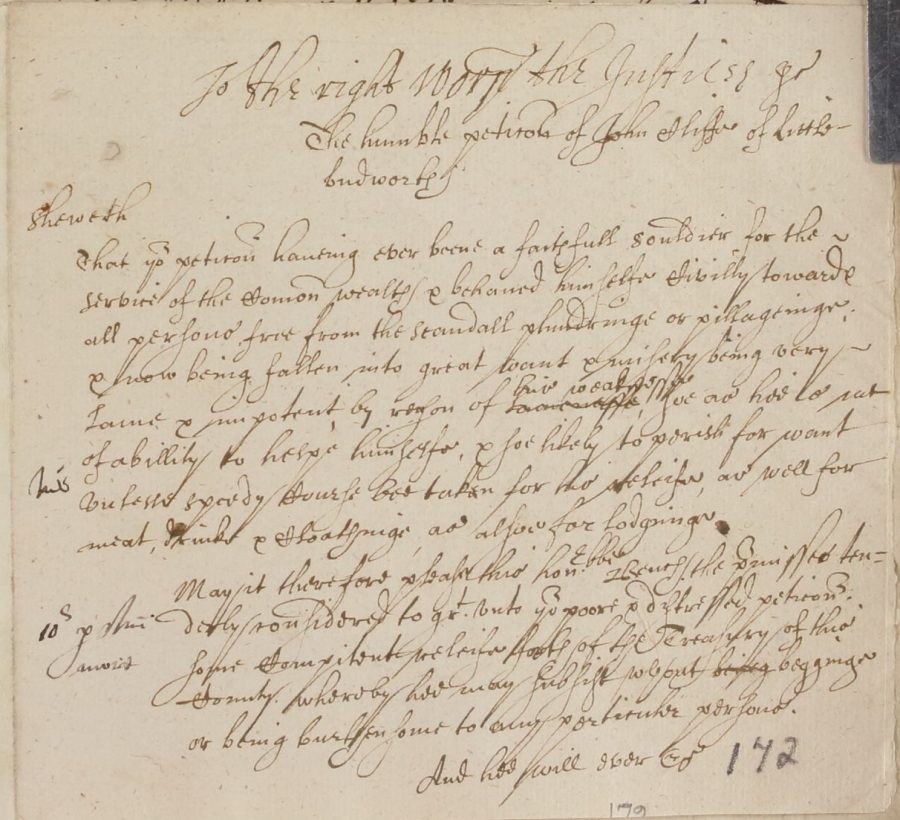 To the right Wor:ll the Justices &c
The humble peticon of John Cliffe of Little
budworth
Sheweth
That yor peticonr haueing ever beene a faithfull Souldier for the
service of the Comon wealth & behaued himselfe Civilly towards
all persons free from the scandall plundringe or pillageinge,
& now being fallen into great want & misery being very
Lame & impotent, by reason of his weaknesse, soe as hee is not
of abillity to helpe himselfe, & soe likely to perish for want
vnlesse speedy Course bee taken for his releife, as well for
meat, drinke & Cloathinge, as alsoe for lodginge
May it therefore please this honble Bench, the pmisses ten=
derly considered to gr:t vnto yor poore & distressed peticonr
10s p Ann
some Competent releife forth of the Treasury of this
County whereby hee may subsist wthout being begginge
or being burthensome to any perticuler persons.
And hee will ever &c
142
179